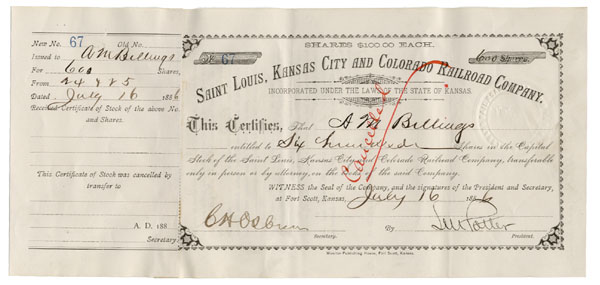 New No. 67 Old No.
Issued to A M Billings
For 600 Shares,
From 24 & 25
Dated July 16 1886
Received Certificate of Stock of the above No.
and Shares.
This Certificate of Stock was cancelled by
transfer to
A. D. 188
Secretary.
SHARES $100.00 EACH.
No 67
600 Shares
SAINT LOUIS, KANSAS CITY AND COLORADO RAILROAD COMPANY.
INCORPORATED UNDER THE LAWS OF THE STATE OF KANSAS.
This Certifies, That A M Billings
entitled to Six hundred shares in the Capital
Stock of the Saint Louis, Kansas City and Colorado Railroad Company, transferable
only in person or by attorney, on the books of the said Company.
Cancelled
WITNESS the Seal of the Company, and the signatures of the President and Secretary,
at Fort Scott, Kansas, July 16 1886
C H Osborn
Secretary.
By
President.
Monitor Publishing House, Fort Scott, Kansas.